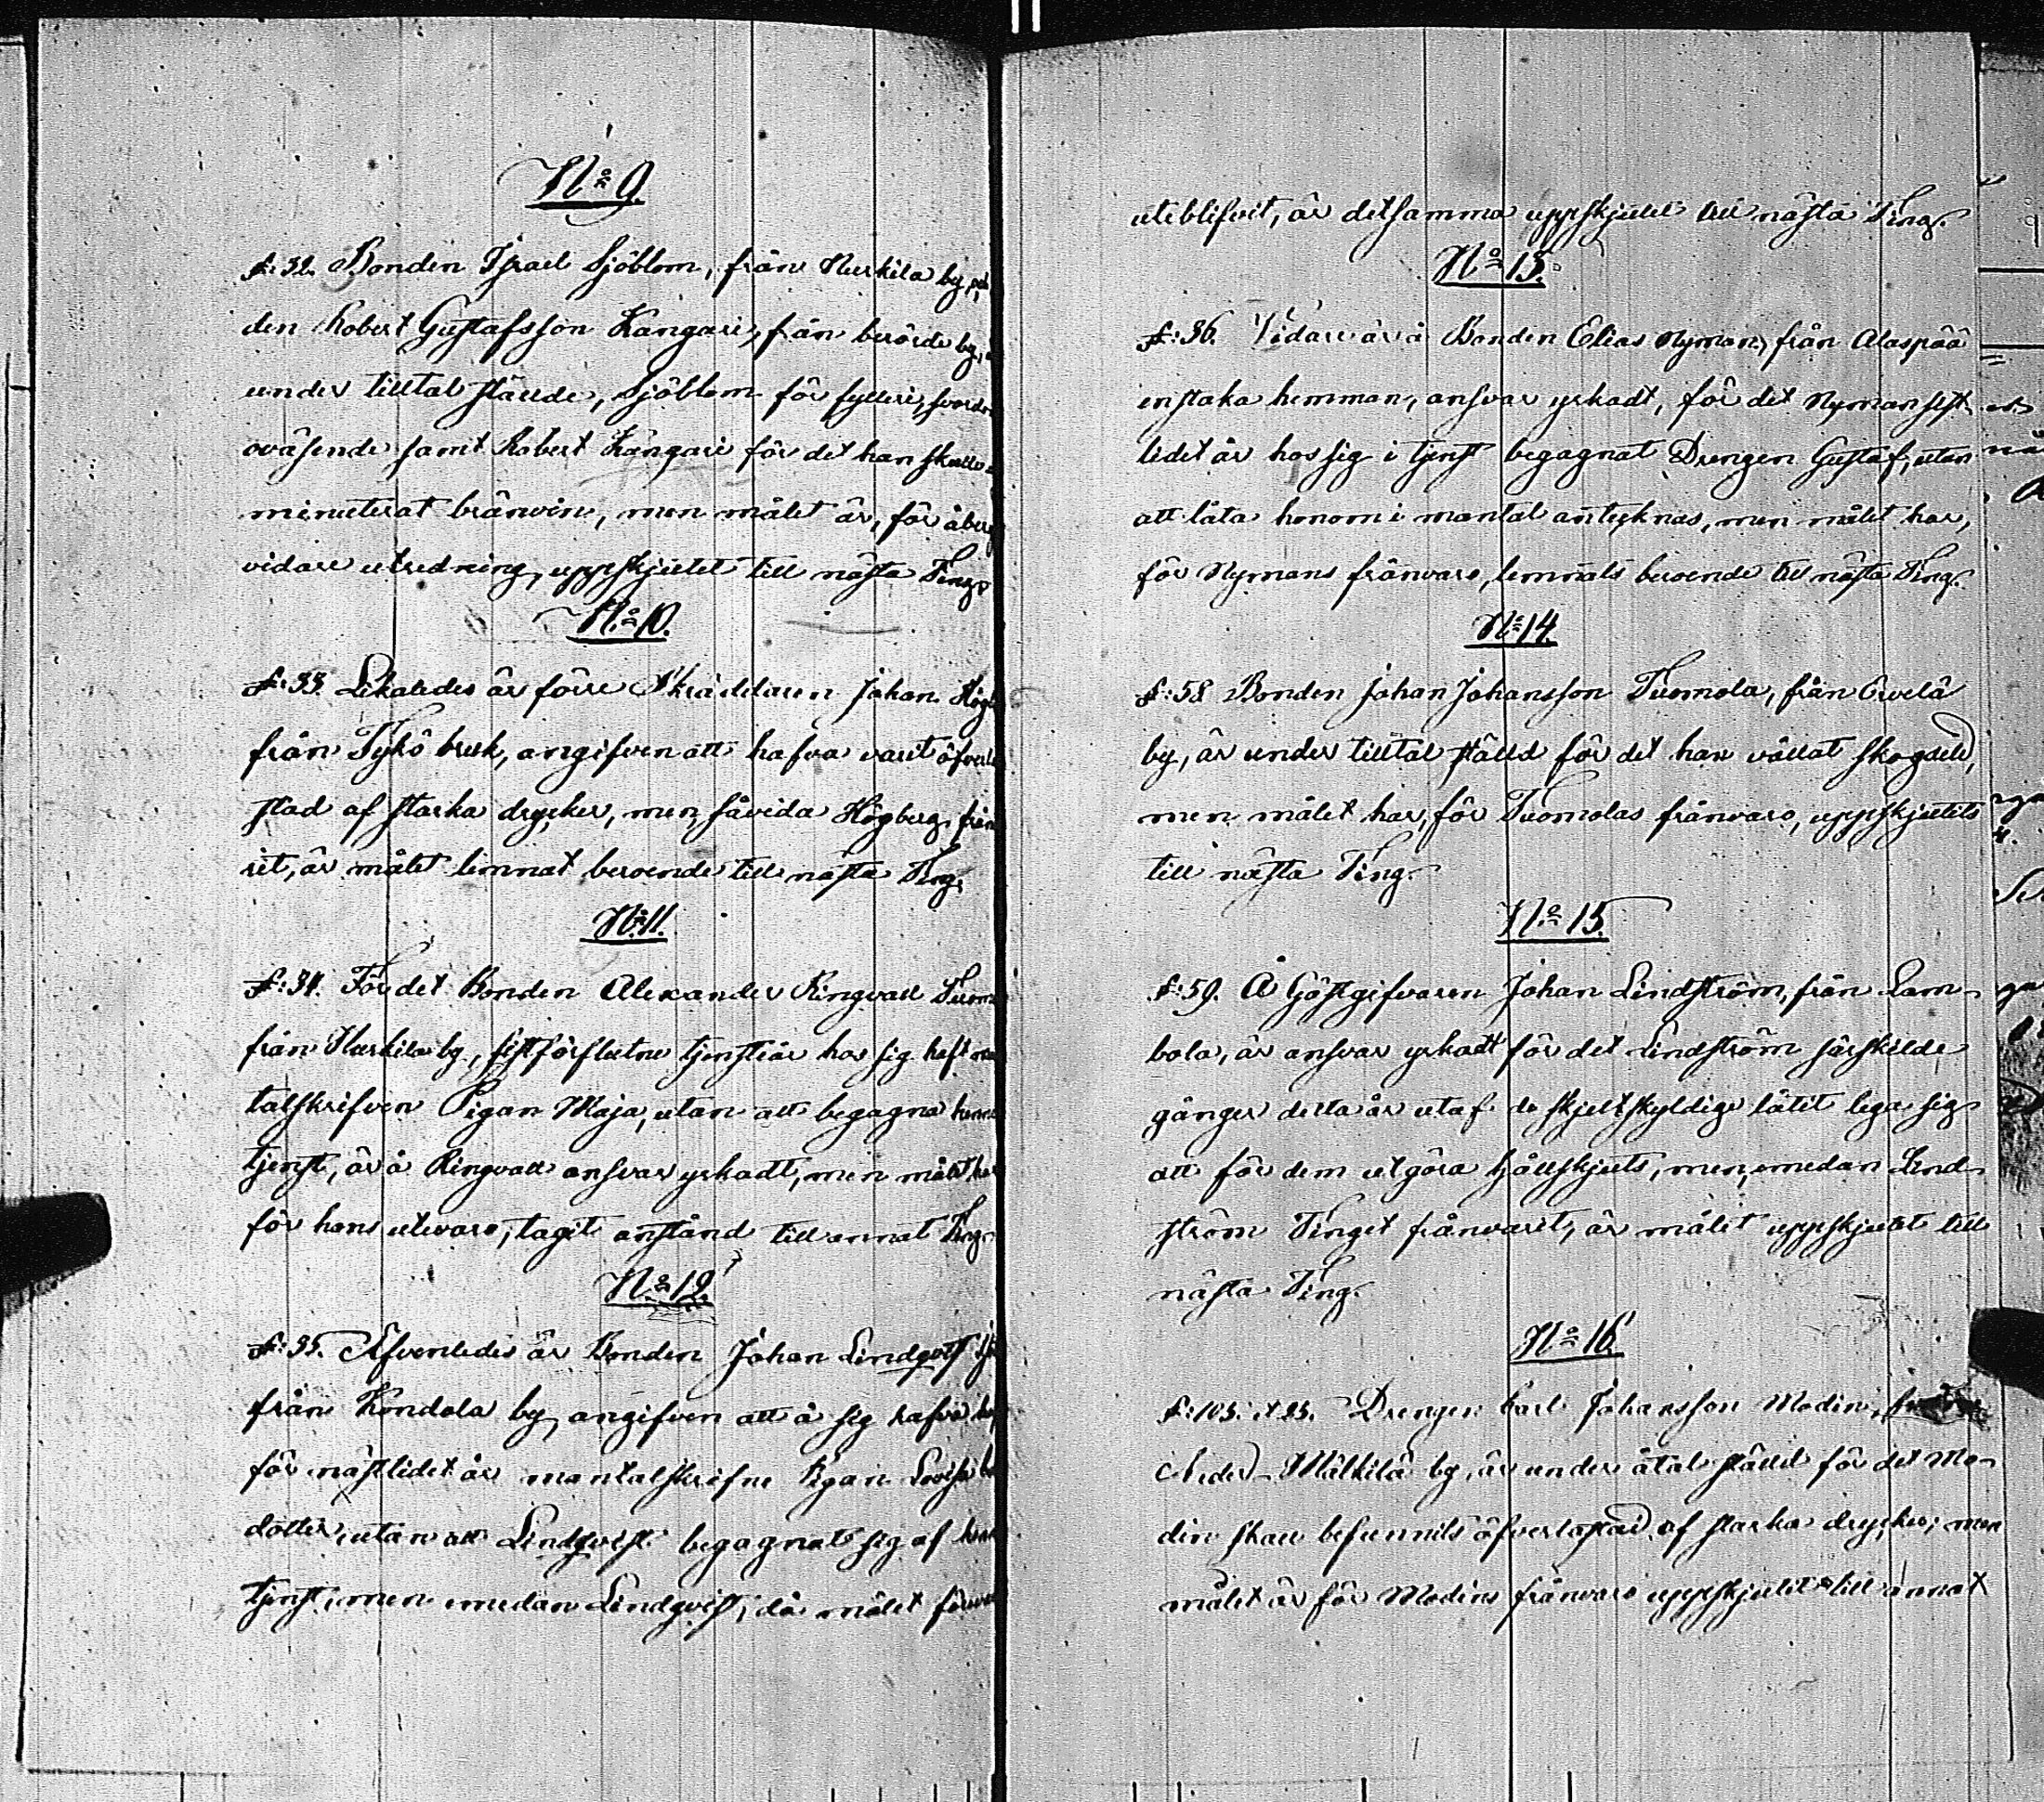 N:o 9.
§: 32. Bonden Israel Sjöblom, från Kurkila by, och
den Robert Gustafsson Kangari, från berörde by,
under tilltal stälde, Sjöblom för fylleri, svordom
oväsende samt Robert Kangari för det han skall
minuterat bränvin, men målet är, för
vidare utredning, uppskjutet till nästa Ting.
N:o 10.
§: 33. Likaledes är förre Skräddaren Johan Högb
från Tykö bruk, angifven att hafva varit öfverla
stad af starka drycker, men, såvida Högberg från
rit, är målet lemnat beroende till nästa Ting.
N:o 11.
§: 34. För det Bonden Alexander Ringvall Tuom
från Kurkila by, sistförflutne tjensteår hos sig haft man
talskrifven Pigan Maja, utan att begagna henne
tjenst, är å Ringvall ansvar yrkadt, men målet har
för hans utevaro, tagit anstånd till annat Ting.
N:o 12.
§: 35. Äfvenledes är Bonden Johan Lindqvist
från Kondola by, angifven att å sig hafva
för nästlidet år mantalskrifne Pigan Lovisa
dotter, utan att Lindqvist begagnat sig af
tjenst, men emedan Lindqvist, då målet
uteblifvit, är detsamma uppskjutet till nästa Ting.
N:o 13.
§: 36. Vidare är å Bonden Elias Nyman, från Alaspää
enstaka hemman, ansvar yrkadt, för det Nyman sist
lidet år hos sig i tjenst begagnat Drengen Gustaf, utan
att låta honom i mantal antecknas, men målet har,
för Nymans frånvaro, lemnats beroende till nästa Ting.
N:o 14.
§: 58. Bonden Johan Johansson Tuomola, från Orvelä
by, är under tilltal ställd för det han vållat skogseld,
men målet har, för Tuomolas frånvaro, uppskjutits
till nästa Ting.
N:o 15.
§: 59. Å Gästgifvaren Johan Lindström, från Lam-
bola, är ansvar yrkadt för det Lindström särskilde
gånger detta år utaf de skjutskyldige låtit lega sig
att för dem utgöra hållskjuts, men, emedan Lind-
ström Tinget frånvarit, är målet uppskjutet till
nästa Ting.
N:o 16.
§: 103. et 25. Drengen Karl Johansson Modin, från
Neder-Mälkilä by, är under åtal ställd för det Mo-
din skall befunnits öfverlastad af starka drycker; men
målet är för Modins frånvaro uppskjutet till annat